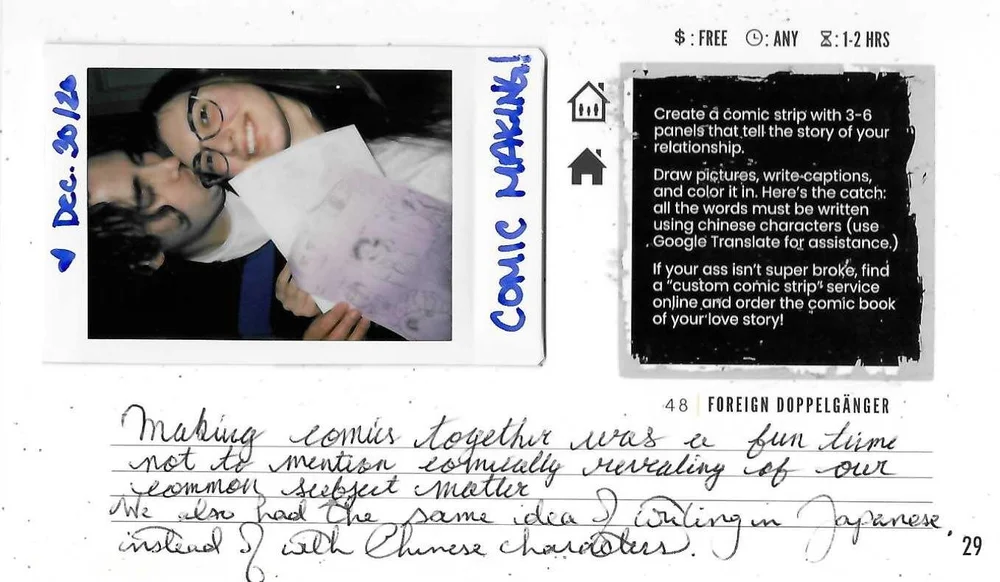 $ : FREE : ANY : 1-2 HRS
♥ Dec. 30/20
COMIC MAKING!
Create a comic strip with 3-6
panels that tell the story of your
relationship.
Draw pictures, write captions,
and color it in. Here's the catch:
all the words must be written
using chinese characters (use
Google Translate for assistance.)
If your ass isn't super broke, find
a "custom comic strip" service
online and order the comic book
of your love story!
48 | FOREIGN DOPPELGÄNGER
Making comics together was a fun time
not to mention comically revealing of our
common subject matter
We also had the same idea of writing in Japanese
instead of with Chinese characters.
29